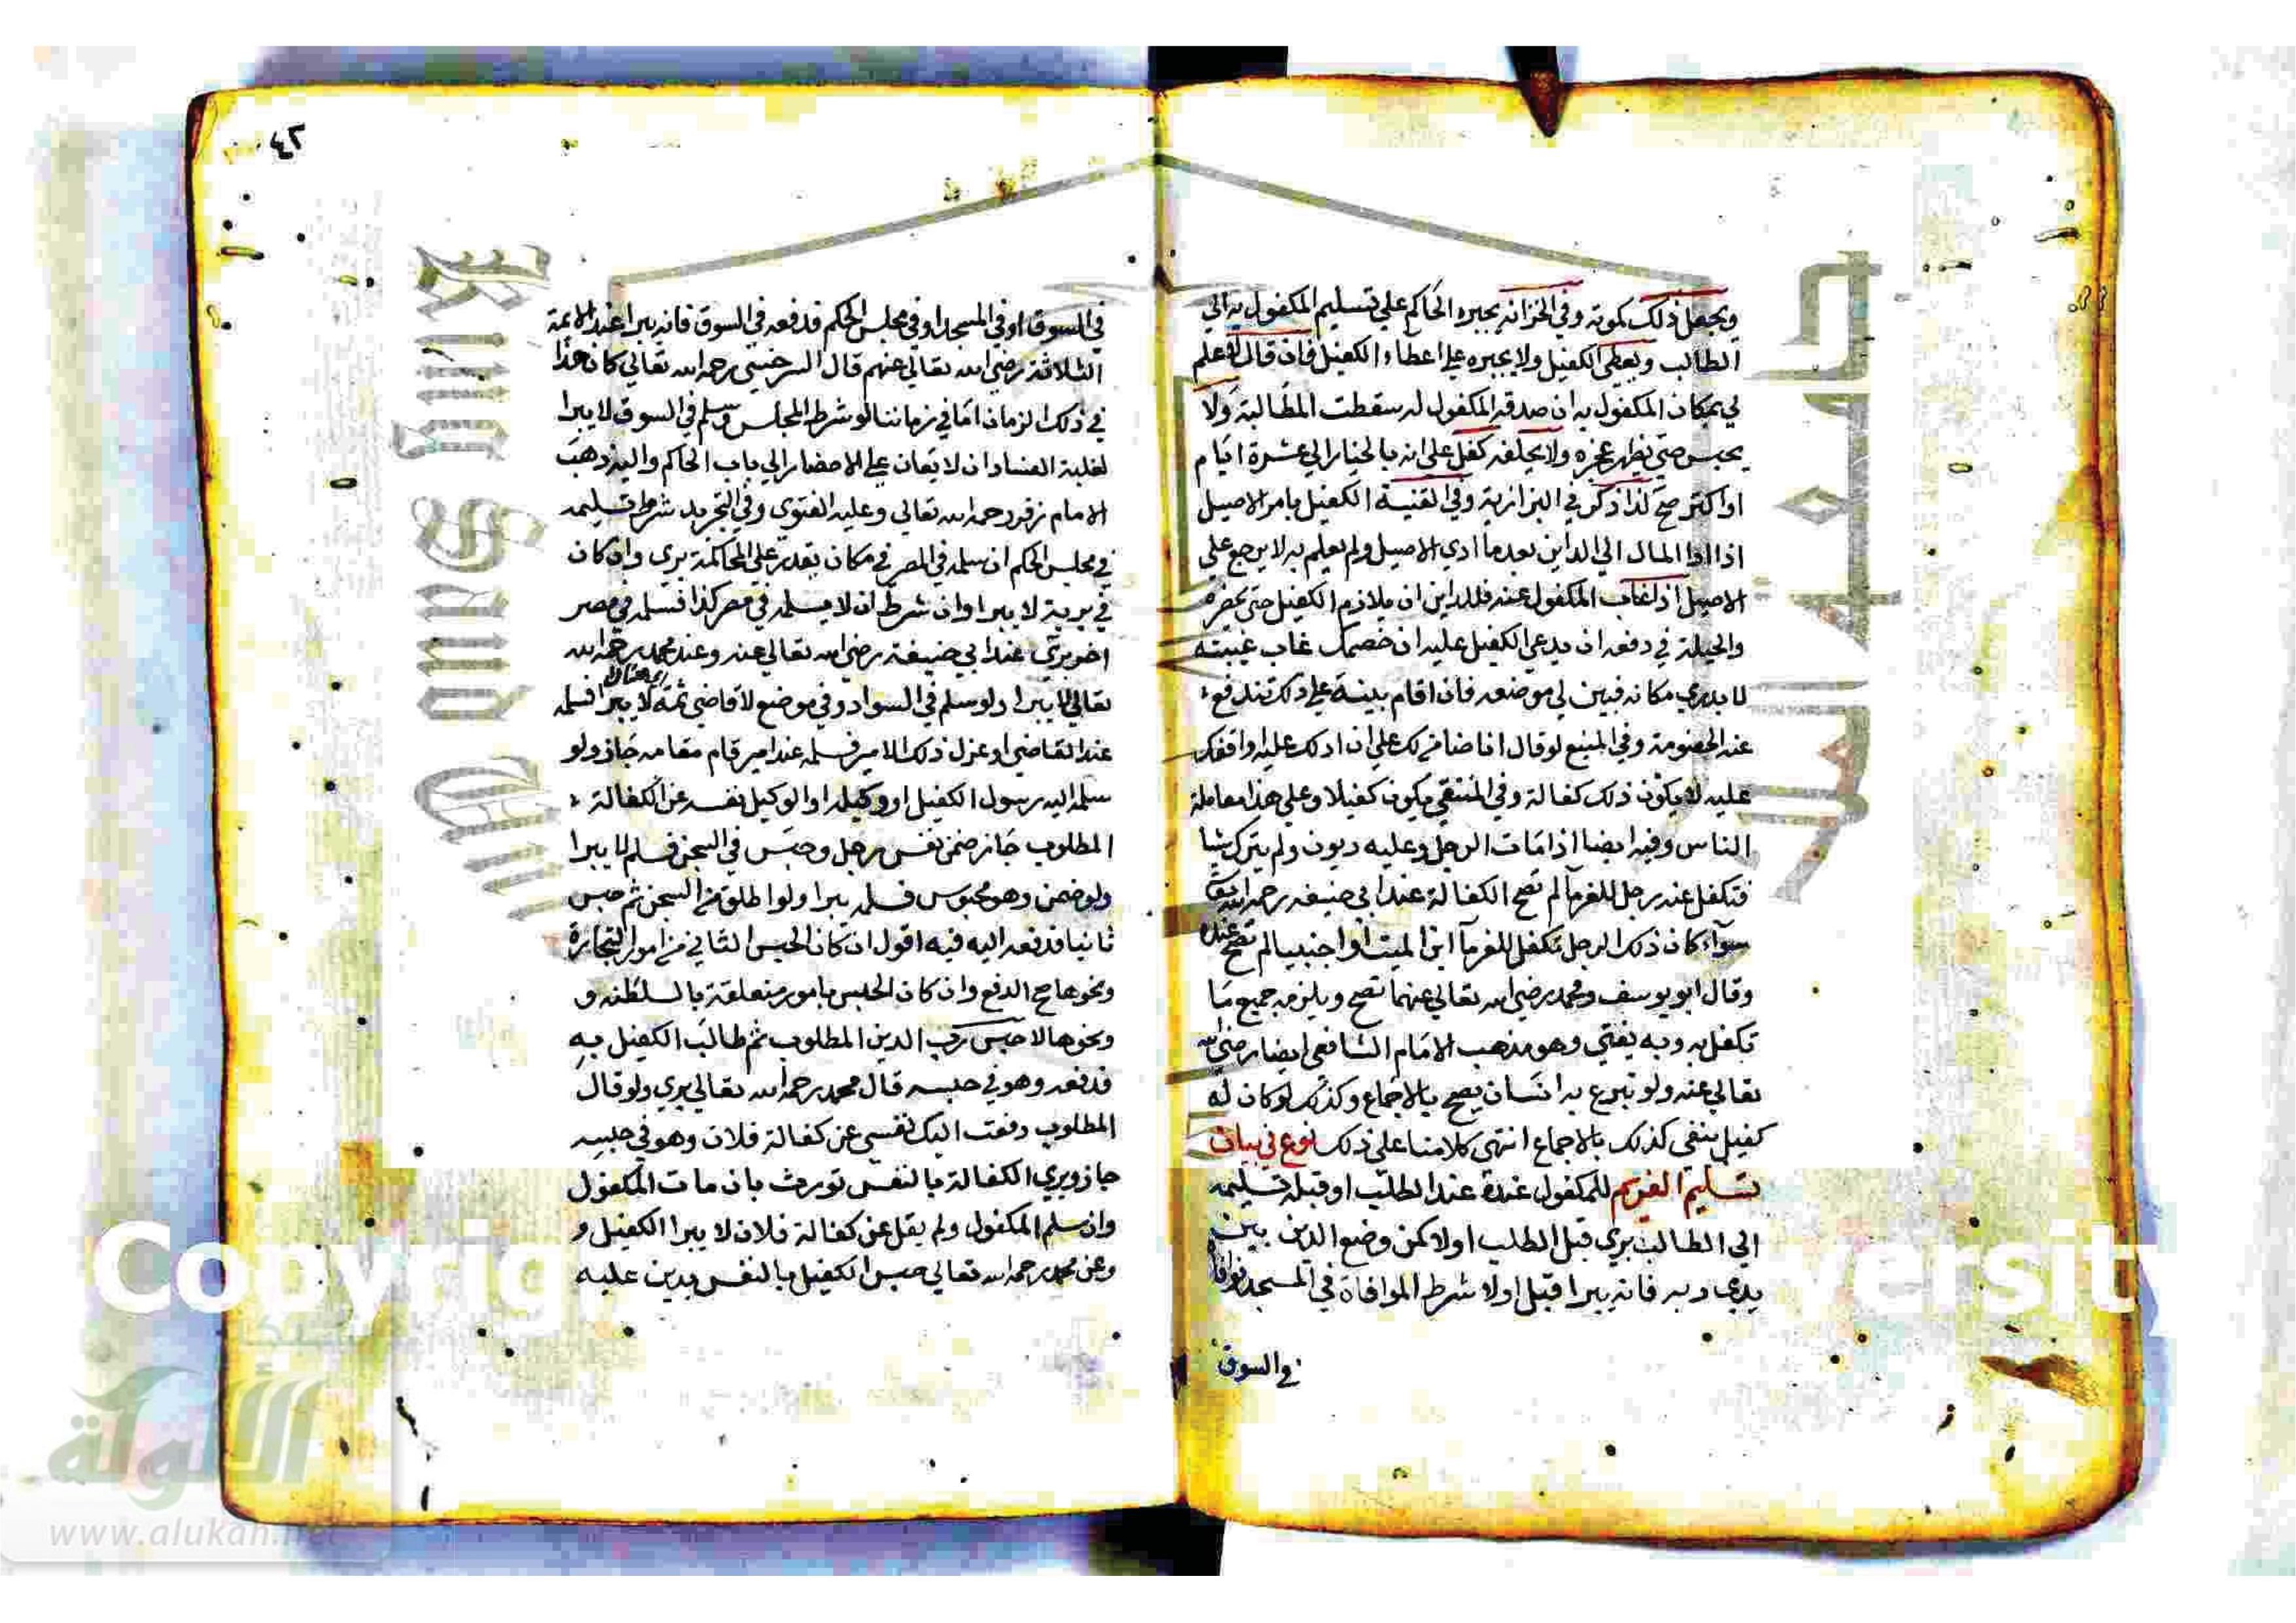 ويجعل ذلك كموته وفي الخزانه يجبره الحاكم علي تسليم المكفول به الي
الطالب ويعطي الكفيل ولا يجبره علي اعطاء الكفيل فان قال لا علم
لي بمكان المكفول به ان صدقه المكفول له سقطت المطالبة ولا
يحبس حتي يظهر عجزه ولا يحلفه كفل علي انه بالخيار الي عشرة ايام
او اكثر صح لذا ذكر في البزازية وفي القنية الكفيل بامر الاصيل
اذا ادا المال الي الداين بعدما ادي الاصيل ولم يعلم به لا يرجع علي
الاصيل اذا غاب المكفول عنه فللداين ان يلازم الكفيل حتي يحضره
والحيلة في دفعه ان يدعي الكفيل عليه ان خصمك غاب غيبته
لا يدري مكانه فبين لي موضعه فان اقام بينة علي ذلك تندفع
عنه الخصومة وفي المنبع لو قال انا ضامن لك علي ان ادلك عليه او اقفك
عليه لا يكون ذلك كفالة وفي المنتقي يكون كفيلا وعلي هذا معاملة
الناس وفيه ايضا اذا مات الرجل وعليه ديون ولم يترك شيا
فتكفل عنه رجل للغرمآ لم تصح الكفالة عند ابي حنيفه رحمه الله تعا
سوآء كان ذلك الرجل تكفل للغرمآ ابن الميت او اجنبيا لم تصح عنده
وقال ابو يوسف ومحمد رضي الله تعالي عنهما تصح ويلزمه جميع ما
تكفل به وبه يفتي وهو مذهب الامام الشافعي ايضا رضي الله
تعالي عنه ولو تبرع به انسان يصح بالاجماع وكذلك لو كان له
كفيل بنفي كذلك بالاجماع انتهي كلامنا علي ذلك نوع في بيان
تسليم الغريم للمكفول عندة عند الطلب او قبله تسليمه
الي الطالب بري قبل الطلب اولا كمن وضع الدين بين
يدي ربه فانه يبرا قبل اولا شرط الموافاة في المسجد فوافا
في السوق
٤٢
في السوق او في المسجد او في مجلس الحكم فدفعه في السوق فانه يبرا عند الايمة
الثلاثة رضي الله تعالي عنهم قال السرخسي رحمه الله تعالي كان هذا
في ذلك الزمان اما في زماننا لو شرط المجلس وسلم في السوق لا يبرا
لغلبة الفساد ان لا يعان علي الاحضار الي باب الحاكم واليه ذهب
الامام زفر رحمه الله تعالي وعليه الفتوي وفي التجريد شرط تسليمه
في مجلس الحكم ان سلمه في المصر في مكان يقدر علي المحاكمة بري وان كان
في برية لا يبرا وان شرط ان لا يسلمه في مصر كذا فسلمه في مصر
اخر بري عند ابي حنيفة رضي الله تعالي عنه وعند محمد رحمه الله
تعالي لا يبرا ولو سلم في السواد وفي موضع لا قاضي ثمة لا يبرا فسلمه
عند القاضي او عزل ذلك الامير فسلمه عند امير قام مقامه جاز ولو
سلمه اليه رسول الكفيل او وكيله او الوكيل نفسه عن الكفالة
المطلوب جاز ضمن نفس رجل وحبس في السجن فسلم لا يبرا
ولو ضمن وهو محبوس فسلم يبرا ولو اطلق من السجن ثم حبس
ثانيا فدفعه اليه فيه اقول ان كان الحبس الثاني من امور التجارة
ونحوها صح الدفع وان كان الحبس بامور متعلقة بالسلطنه و
ونحوها لا حبس رب الدين المطلوب ثم طالب الكفيل به
فدفعه وهو في حبسه قال محمد رحمه الله تعالي بري ولو قال
المطلوب دفعت اليك نفسي عن كفالة فلان وهو في حبسه
جاز وبري الكفالة بالنفس تورث بان مات المكفول
وان سلم المكفول ولم يقل عن كفالة فلان لا يبرا الكفيل و
وعن محمد رحمه الله تعالي حبس الكفيل بالنفس بدين عليه
King Saud
Copyrig
versit
الألوكة
www.alukah.net